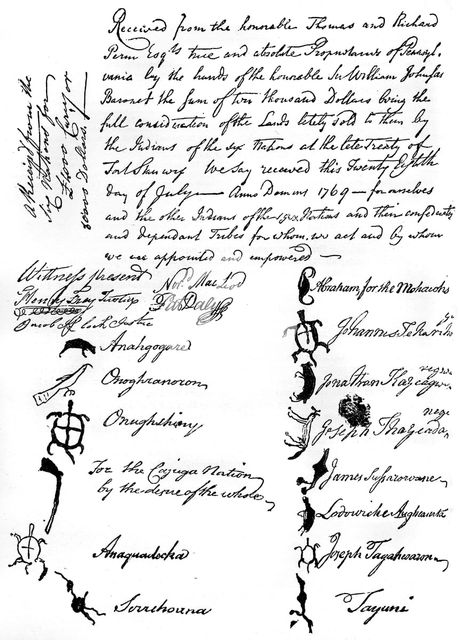 Received from the honorable Thomas and Richard
Penn Esqrs true and absolute Proprietaries of Pensyl-
vania by the hands of the honorable Sir William Johnson
Baronet the Sum of ten thousand Dollars being the
full consideration of the Lands lately sold to them by
the Indians of the six Nations at the late treaty of
Fort Stanwix We say received this Twenty Eighth
day of July — Anno Domini 1769 — for ourselves
and the other Indians of the six Nations and their confederates
and dependant Tribes for whom we act and by whom
we are appointed and empowered —
a Receipt from the
Six Nations for
Dollars
Witness present
Justice
Norn MacLeod
Abraham for the Mohawks
Johannes
Anahgogare
Jonathan
Onoghranoron
Joseph
Onughshiny
James
For the Cajuga Nation
by the desire of the whole
Lodowicke
Anaquadecka
Joseph Tagahesaron
Serrehoana
Tayuni